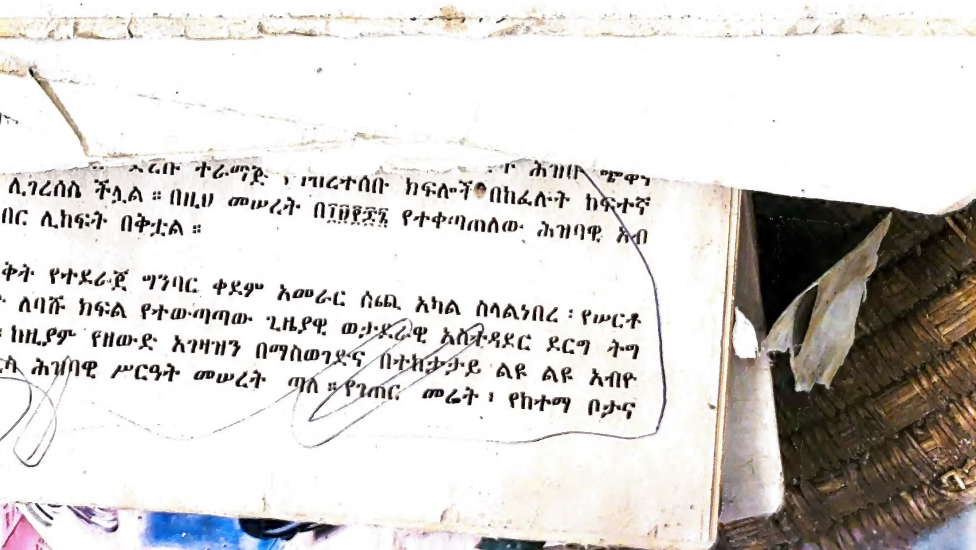 ተራማጅ ፣ ክፍሎች በከፈሉት ከፍተኛ
ሊገረሰስ ችሏል ። በዚህ መሠረት በ፲፱፻፷፮ የተቀጣጠለው ሕዝባዊ አብ
በር ሊከፍት በቅቷል ።
ቅት የተደራጀ ግንባር ቀደም አመራር ሰጪ አካል ስላልነበረ ፡ የሠርቶ
ለባሹ ክፍል የተውጣጣው ጊዜያዊ ወታደራዊ አስተዳደር ደርግ ትግ
ከዚያም የዘውድ አገዛዝን በማስወገድና በተከታታይ ልዩ ልዩ አብዮ
ሕዝባዊ ሥርዓት መሠረት ጣለ ። የገጠር መሬት ፣ የከተማ ቦታና